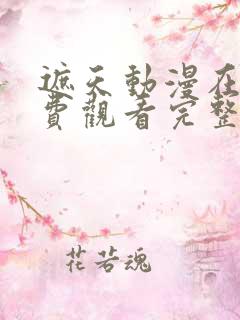 遮天動漫在
費觀看完整
花若魂